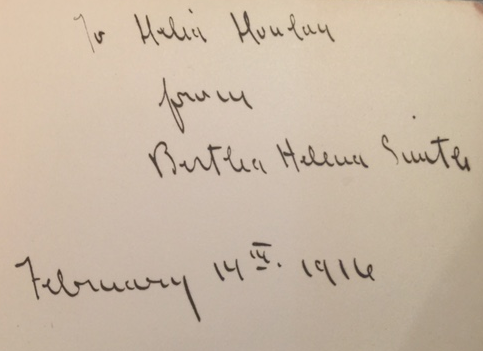 To Helia Hunlay
from
Bertha Helena Smith
February 14th. 1916